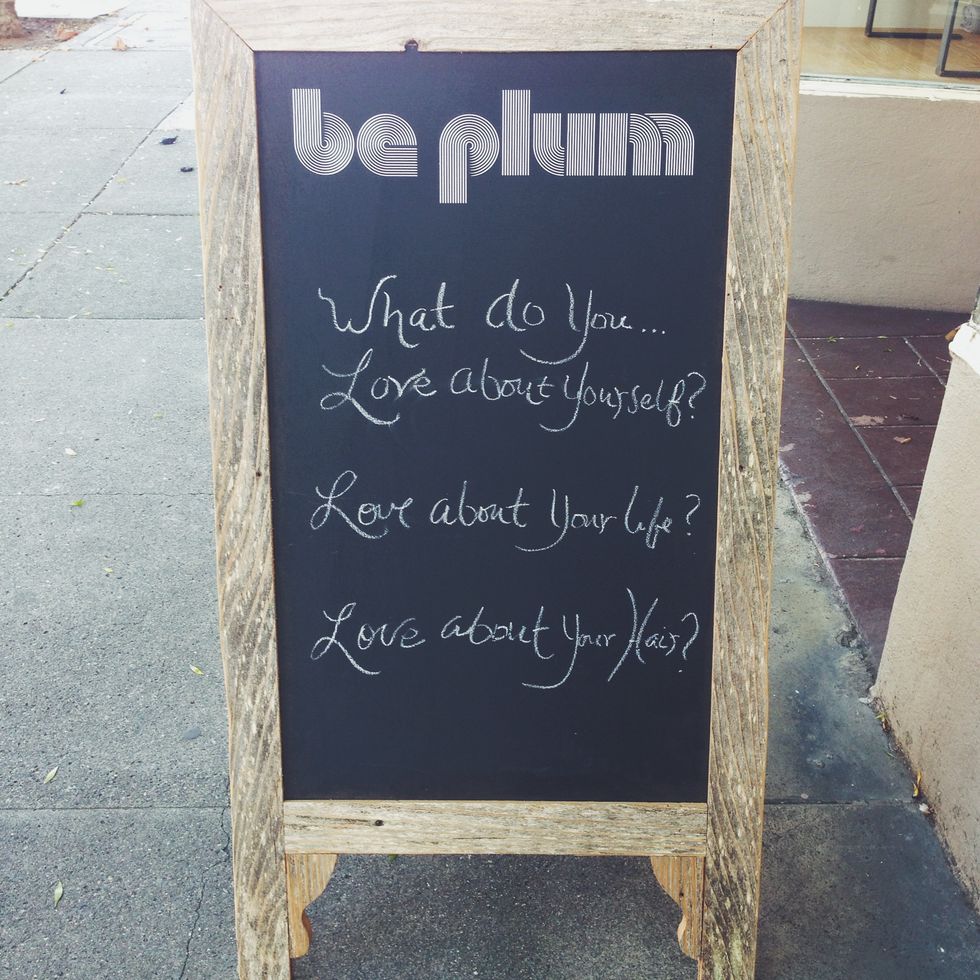 be plum
What do You...
Love about Yourself?
Love about Your life?
Love about Your Hair?